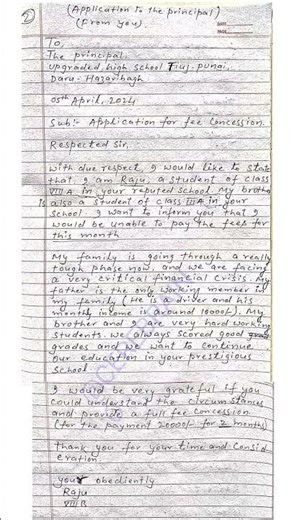 (Application to the principal)
(From you)
DATE
PAGE
To,
The principal.
upgraded high school Tiuj-punai,
Daru-Hazaribagh
05th April, 2024
Sub:- Application for fee Concession.
Respected Sir,
With due respect, I would like to state
that I am Raju, a student of class
VIII A in your reputed school My brother
is also a student of class III A in your
school. I want to inform you that I
would be unable to pay the fees for
this month
My family is going through a really
tough phase now, and we are facing
a very critical financial crisis. My
father is the only working member in
my family (He is a driver and his
monthly income is around 10000/-). My
brother and I are very hard working
students. We always scored good
grades and we want to continue
our education in your prestigious
school
I would be very grateful if you
could understand the circumstances
and provide a full fee concession.
(for the payment 20000/- for 2 months)
Thank you for your time and Consid
eration
your obediently
Raju
VIII B